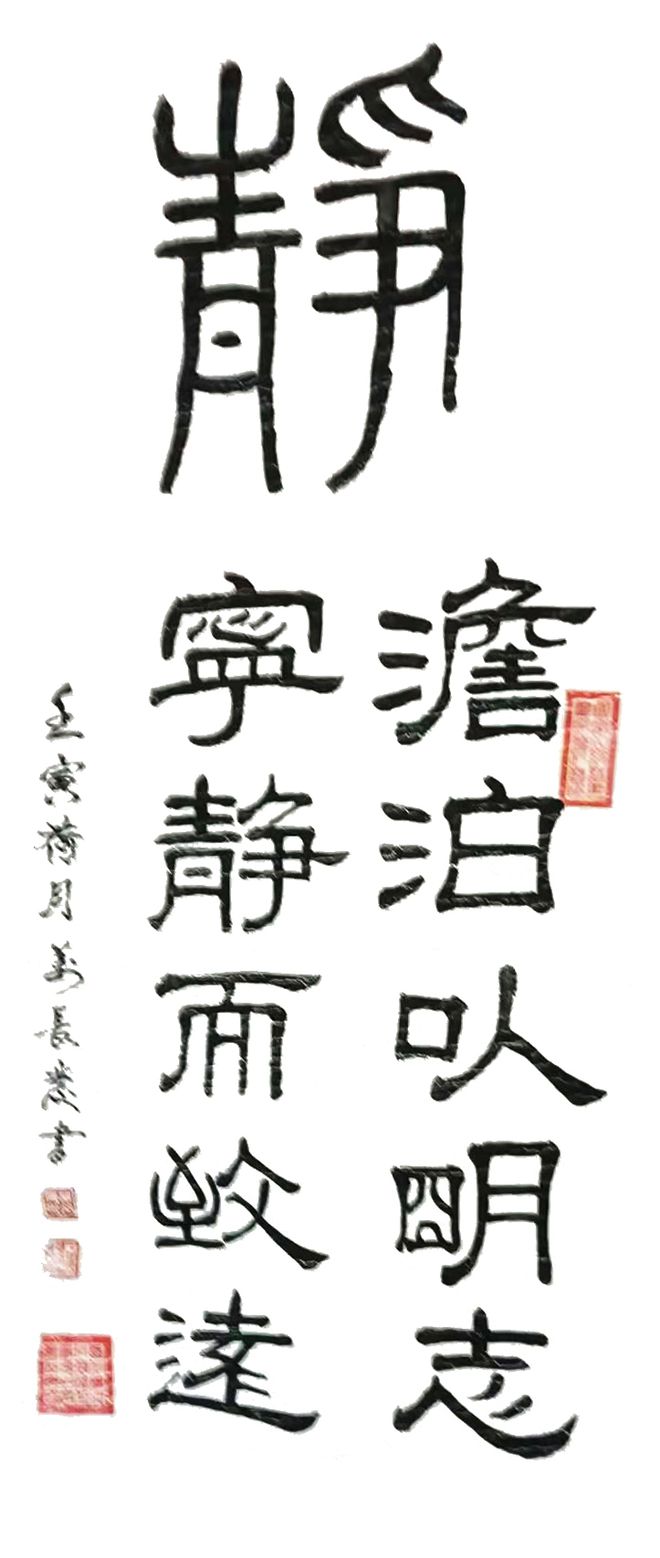 靜
澹泊以明志
寧静而致遠
壬寅荷月 長 書